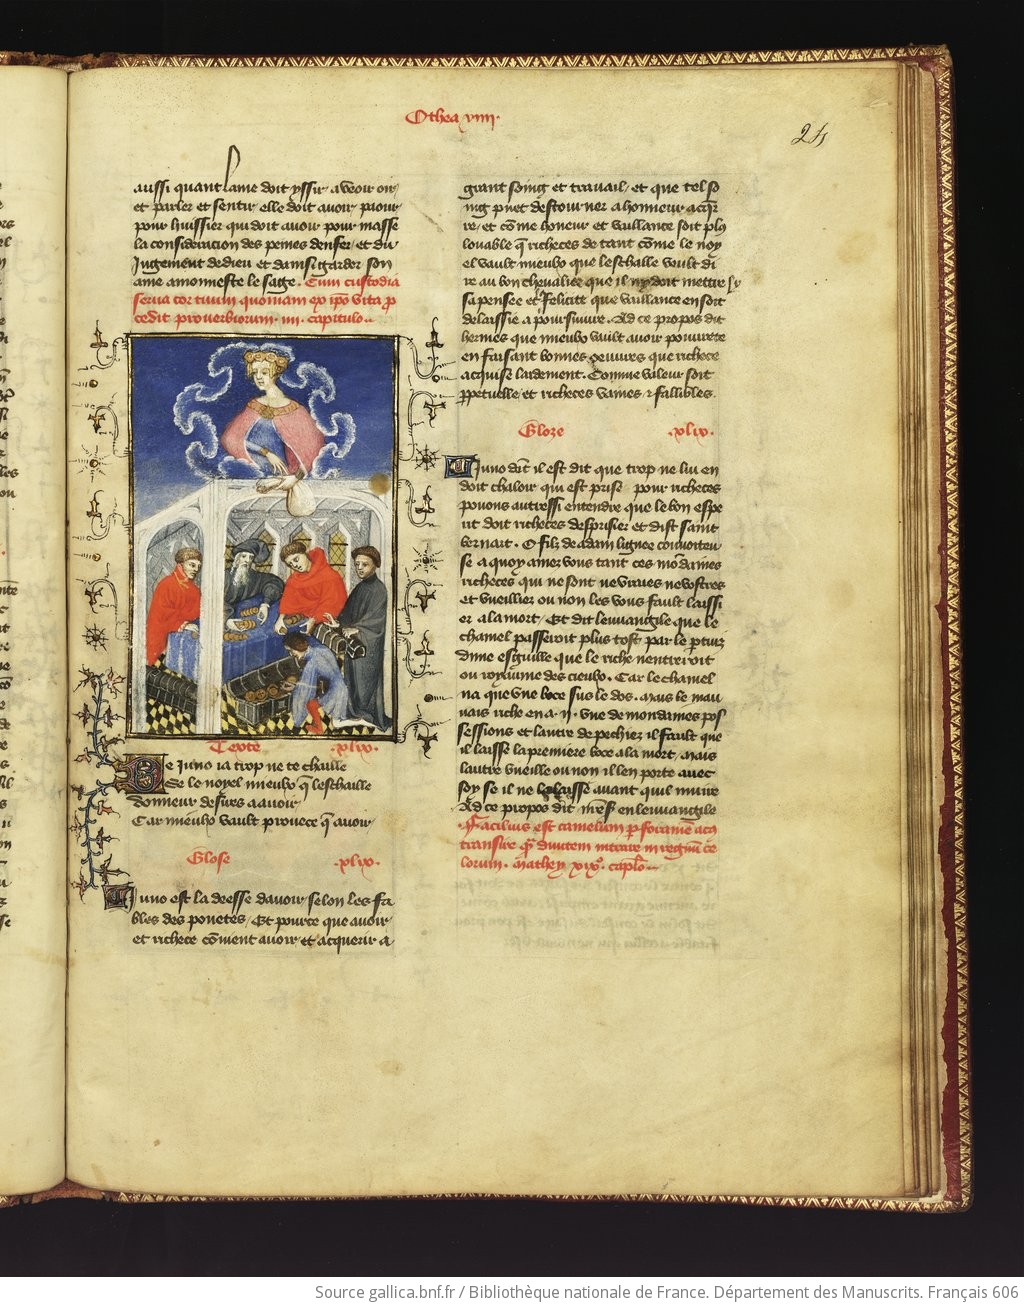 Othea viiii.
24
aussi quant lame doit yssir, a veoir oir
et parler et sentir, elle doit avoir paour
pour huissier qui doit avoir pour masse
la consideracion des peines denfer, et du
Jugement de dieu et dainsi garder son
ame amonneste le sage. Cum custodia
serva cor tuum quoniam ex ipso vita p
cedit proverbiorum .iiii. capitulo.
Texte .xlix.
De Juno ia trop ne te chaille
Se le noyel mieulx q̃ lescaille
Donneur desires a avoir
Car mieulx vault prouece q̃ avoir
Glose .xlix.
Juno est la deesse davoir, selon les fa
bles des ponetes, Et pource que avoir
et richece cõvient avoir, et acquerir a
grant soing et travail, et que tel so
ing puet destourner a honneur acq̃r
re, et cõme honeur et vaillance soit plꝯ
louable q̃ richeces de tant cõme le noy
el vault mieulx que leschalle voult di
re au bon chevalier que il ne doit mettre
sa pensee et felicite que vaillance en soit
delaissie a poursuivre. Ad ce propos dit
hermes que mieulx vault avoir povurete
en faisant bonnes oeuvres que richece
acquise laidement. Comme valeur soit
ppetuelle, et richeces vaines & faillibles.
Gloze .xlix.
Juno dõt il est dit que trop ne lui en
doit chaloir qui est prise pour richeces
povons autressi entendre que le bon espe
rit doit richeces desprisier et dist saint
bernart. O filz de adam lignee couvoiteu
se a quoy amez vous tant ces mõdaines
richeces qui ne sont ne vraies ne vostres
et vueillier ou non les vous fault laissi
er a la mort, Et dit leuvangile que le
chamel passeroit plus tost par le ptuiz
dune esguille que le riche nentreroit
ou royaume des cieulx. Car le chamel
na que une boce sus le dos. Mais le mau
vais riche en a .ii. une de mondaines pos
sessions et lautre de pechiez il fault que
il laisse la premiere boce a la mort, Mais
lautre vueille ou non il len porte avec
soy se il ne la laisse avant quil muire
Ad ce propos dit nr̃e s̃ en leuvangile
Facilius est camelum p foramẽ acꝯ
transire q̃ divitem intrare in regnũ ce
lorum. Mathey xixº. capl̃o.
Source gallica.bnf.fr / Bibliothèque nationale de France. Département des Manuscrits. Français 606